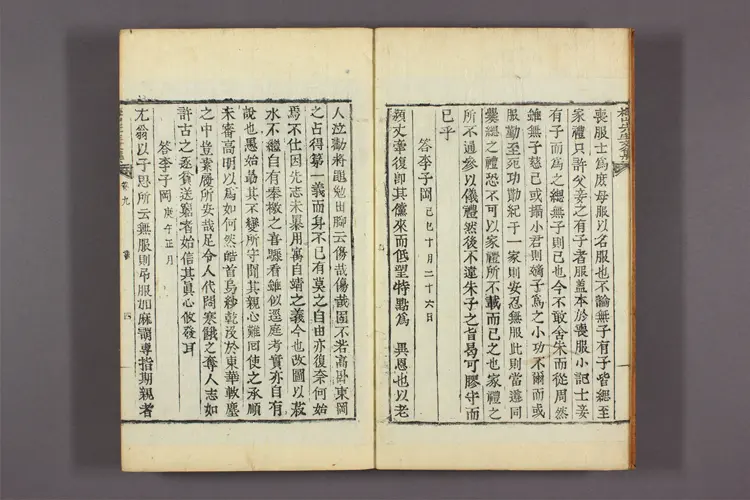 喪服士爲庶母服以名服也不論無子有子皆緦至
家禮只許父妾之有子者服蓋本於喪服小記士妾
有子而爲之緦無子則已也今不敢舍朱而從周然
雖無子慈己或攝小君則嫡子爲之小功不爾而或
服勤至死功勤紀于一家則安忍無服此則當遵同
爨緦之禮恐不可以家禮所不載而已之也家禮之
所不過參以儀禮然後不違朱子之旨曷可膠守而
已乎
答李子岡 己巳十月二十六日
潁丈牽復即其儻來而低望特點爲 異恩也以老
人泣動將黽勉出脚云傷哉傷哉固不若高臥東岡
之占得第一義而身不已有莫之自由亦復奈何始
焉不仕因先志未暴用寓自靖之義今也改圖以菽
水不繼自有奉檄之喜驟看雖似逕庭考實亦自有
說也愚始最其不變所守聞其親心難回使之承順
未審高明以爲如何然皓首烏紗乾沒於東華軟塵
之中豈素履所安哉足令人代悶寒餓之奪人志如
許古之逐貧送窮者始信其眞心做發耳
答李子岡 庚午正月
尤翁以子思所云無服則吊服加麻謂專指期親者
卷九
四